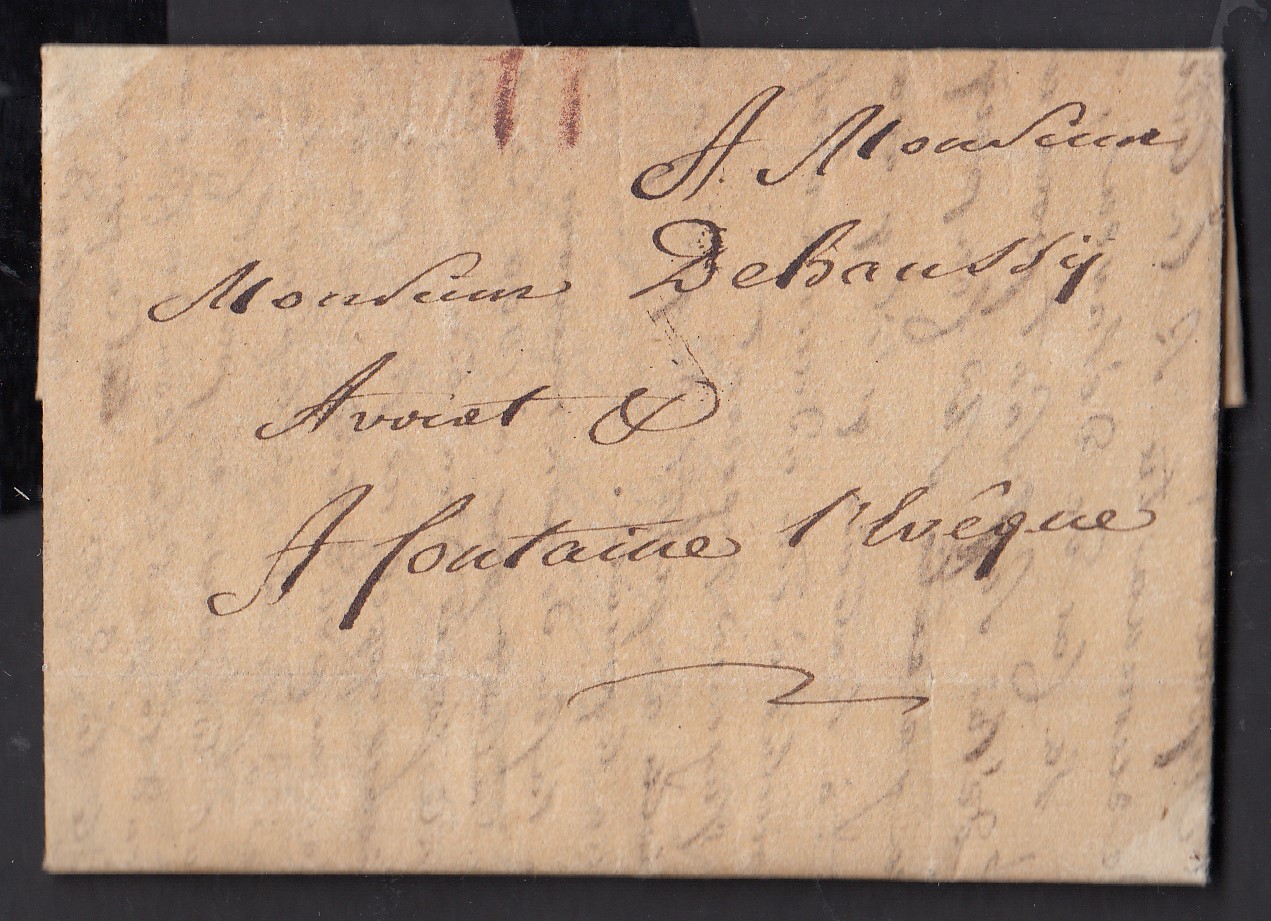 A Monsieur
Monsieur Dehaussÿ
Avocat &
A fontaine l'Evêque